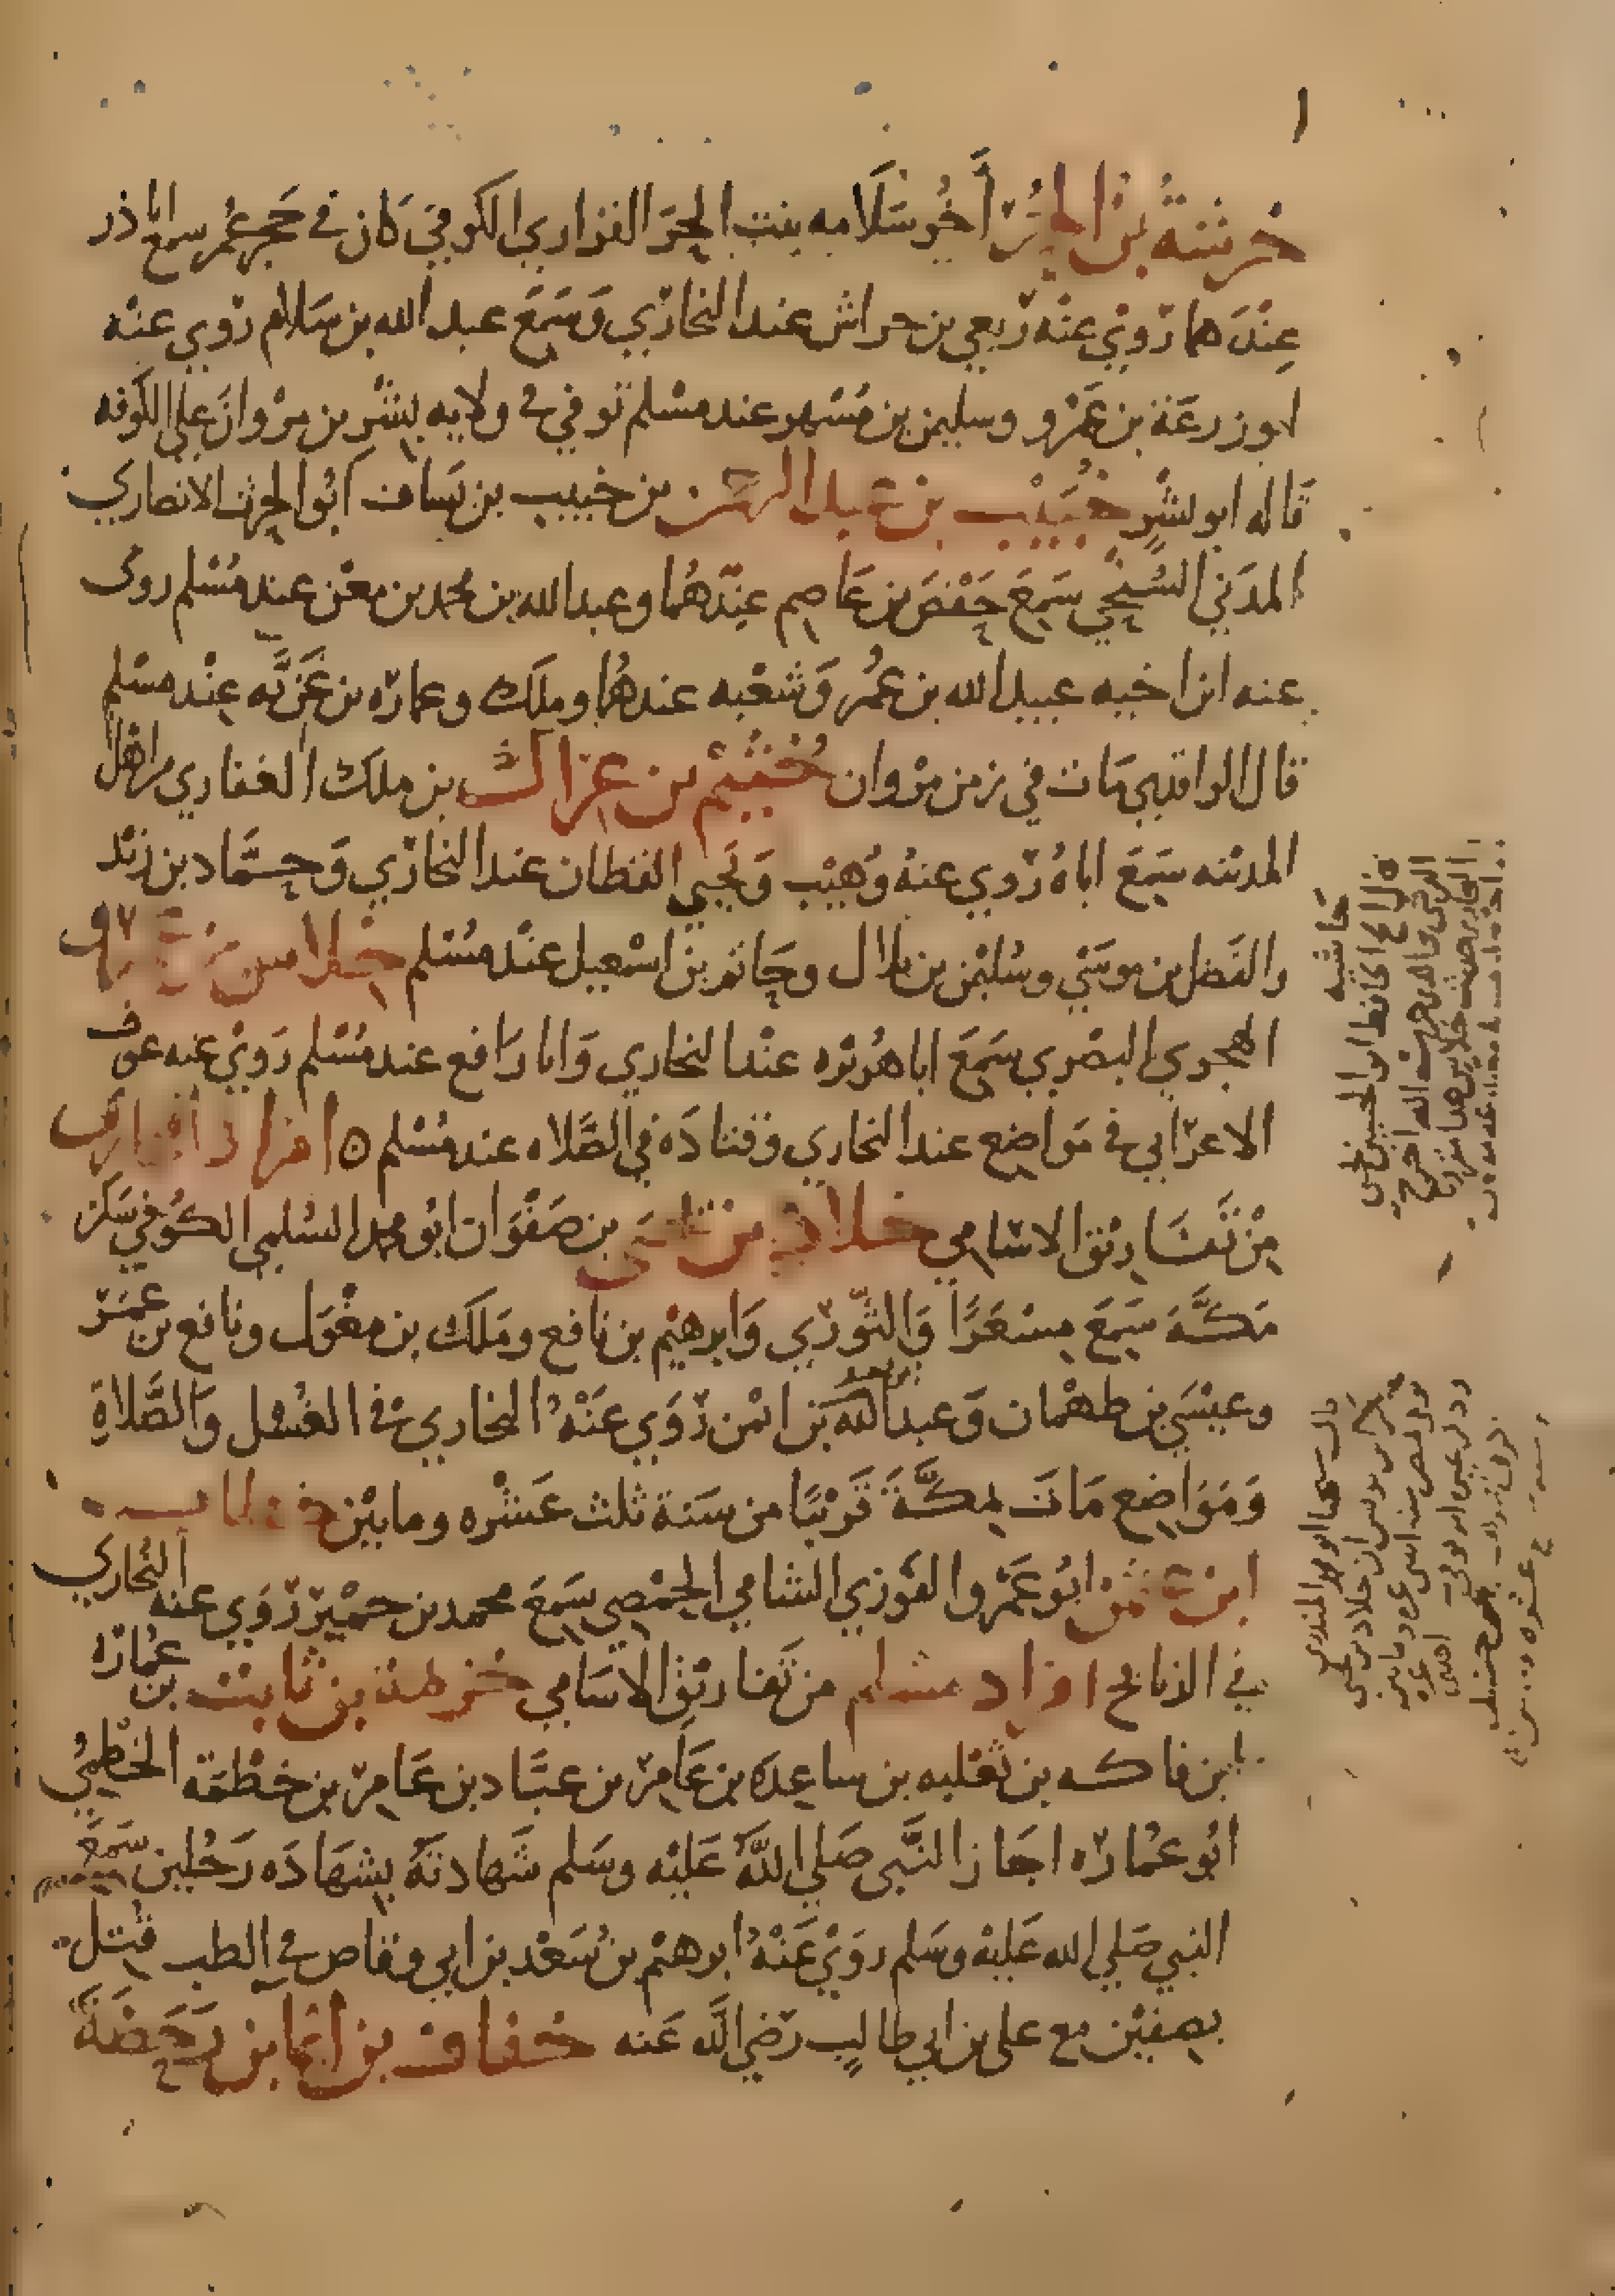 خرشة بن الحر أخو سلامه بنت الحر الفزاري الكوفي كان في حجر عمر سمع ابا ذر
عندهما روي عنه ربعي بن حراش عند البخاري وسمع عبد الله بن سلام روي عنه
ابو زرعة بن عمرو وسليمن بن مسهر عند مسلم توفي في ولايه بشر بن مروان على الكوفه
قاله ابو بشر خبيب بن عبد الرحمن بن خبيب بن يساف ابو الحرث الانصاري
المدني السنحي سمع حفص بن عاصم عندهما وعبد الله بن محمد بن معن عند مسلم روى
عنه ابن اخيه عبيد الله بن عمر وشعبه عندهما وملك وعماره بن غزيه عند مسلم
قال الواقدي مات في زمن مروان خثيم بن عراك بن ملك الغفاري من اهل
المدينه سمع اباه روي عنه وهيب ويحيى القطان عند البخاري وحماد بن زيد
والفضل بن موسى وسليمن بن بلال وحاتم بن اسمعيل عند مسلم خلاس بن عمرو
الهجري البصري سمع ابا هريره عند البخاري وابا رافع عند مسلم روي عنه عوف
الاعرابي في مواضع عند البخاري وقتاده في الصلاه عند مسلم ه افراد البخاري
من تفاريق الاسامي خلاد بن يحيى بن صفوان ابو محمد السلمي الكوفي سكن
مكة سمع مسعرا والثوري وابرهيم بن نافع وملك بن مغول ونافع بن عمر
وعيسى بن طهمان وعبد الله بن ايمن روي عنه البخاري في الغسل والصلاة
ومواضع مات بمكة قريبا من سنة ثلث عشره ومايتين خطاب
ابن عثمن ابو عمرو الفوزي الشامي الحمصي سمع محمد بن حمير روي عنه البخاري
في الذبايح افراد مسلم من تفاريق الاسامي خزيمة بن ثابت بن عمارة
ابن فاكه بن ثعلبه بن ساعده بن عامر بن عباد بن عامر بن خطمة الخطمي
ابو عماره اجاز النبي صلي الله عليه وسلم شهادته بشهاده رجلين سمع
النبي صلي الله عليه وسلم روي عنه ابرهيم بن سعد بن ابي وقاص في الطب قتل
بصفين مع علي بن ابي طالب رضي الله عنه خفاف بن ايما بن رحضة
حاشيه